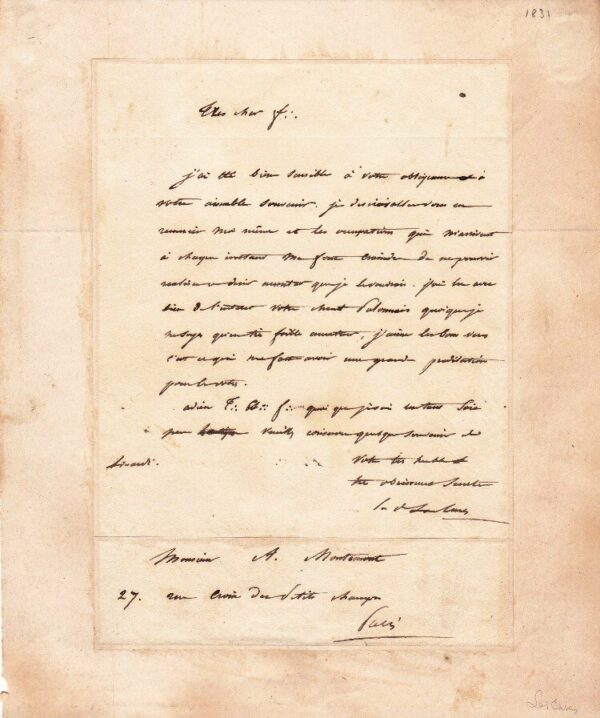 1831
Très cher f∴
j'ai été bien sensible à votre obligeance et à
votre aimable souvenir. je désirais aller vous en
remercier moi même et les occupations qui m'arrivent
à chaque instant me font craindre de ne pouvoir
aussitot que je le voudrais. j'ai lu avec
bien de l'intéret votre chant Polonais quoique je
ne soye qu'un très foible amateur, j'aime les bons vers
c'est ce qui me fait avoir une grande prédilection
pour les votres.
adieu T∴ C∴ f∴ quoi que j'ai
peu veuillez conserver quelque souvenir de
votre très humble et
très obéissant Servite
le Cte de Las Cases
Monsieur A. Montémont
27. rue Croix des Petits champs
Paris
Las Cases